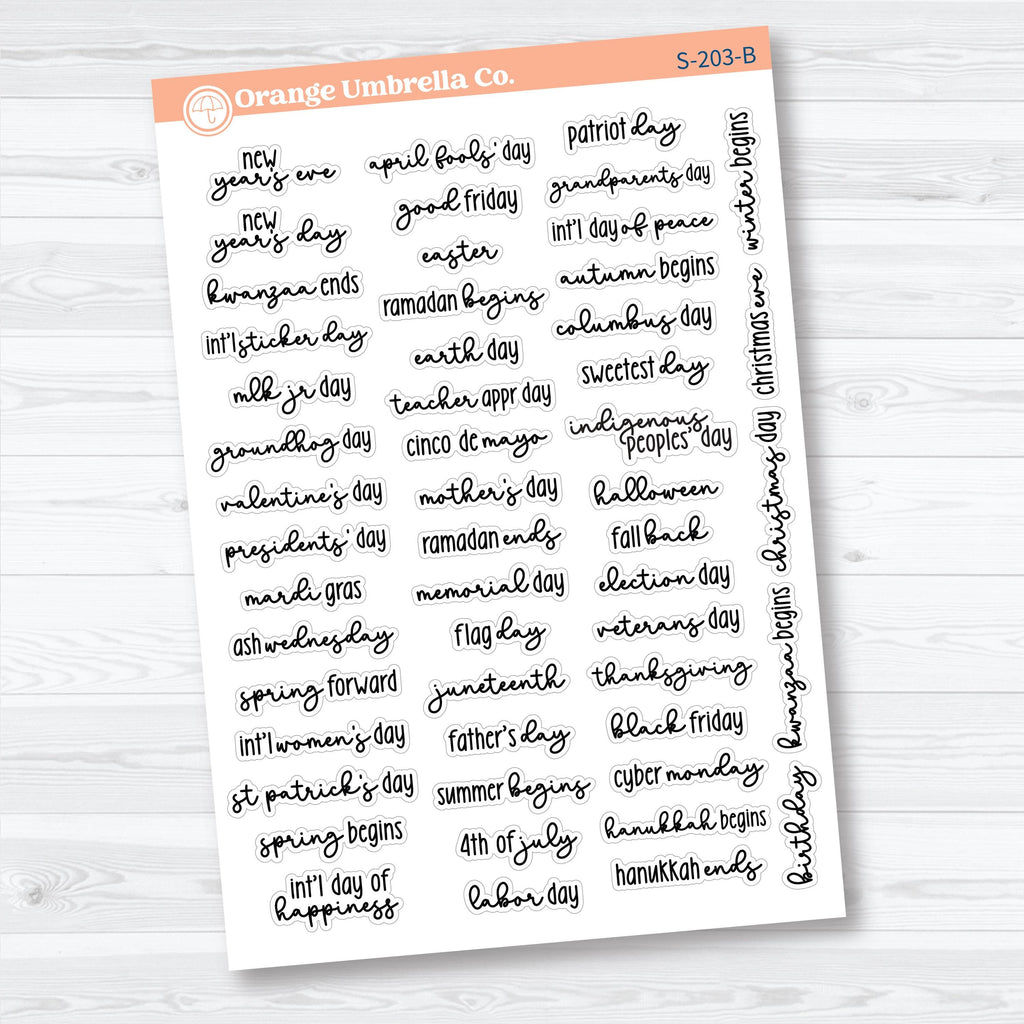 Orange Umbrella Co.
S-203-B
new
year's eve
new
year's day
kwanzaa ends
int'l sticker day
mlk jr day
groundhog day
valentine's day
presidents' day
mardi gras
ash wednesday
spring forward
int'l women's day
st patrick's day
spring begins
int'l day of
happiness
april fools' day
good friday
easter
ramadan begins
earth day
teacher appr day
cinco de mayo
mother's day
ramadan ends
memorial day
flag day
juneteenth
father's day
summer begins
4th of july
labor day
patriot day
grandparents day
int'l day of peace
autumn begins
columbus day
sweetest day
indigenous
peoples' day
halloween
fall back
election day
veterans day
thanksgiving
black friday
cyber monday
hanukkah begins
hanukkah ends
winter begins
christmas eve
christmas day
kwanzaa begins
birthday